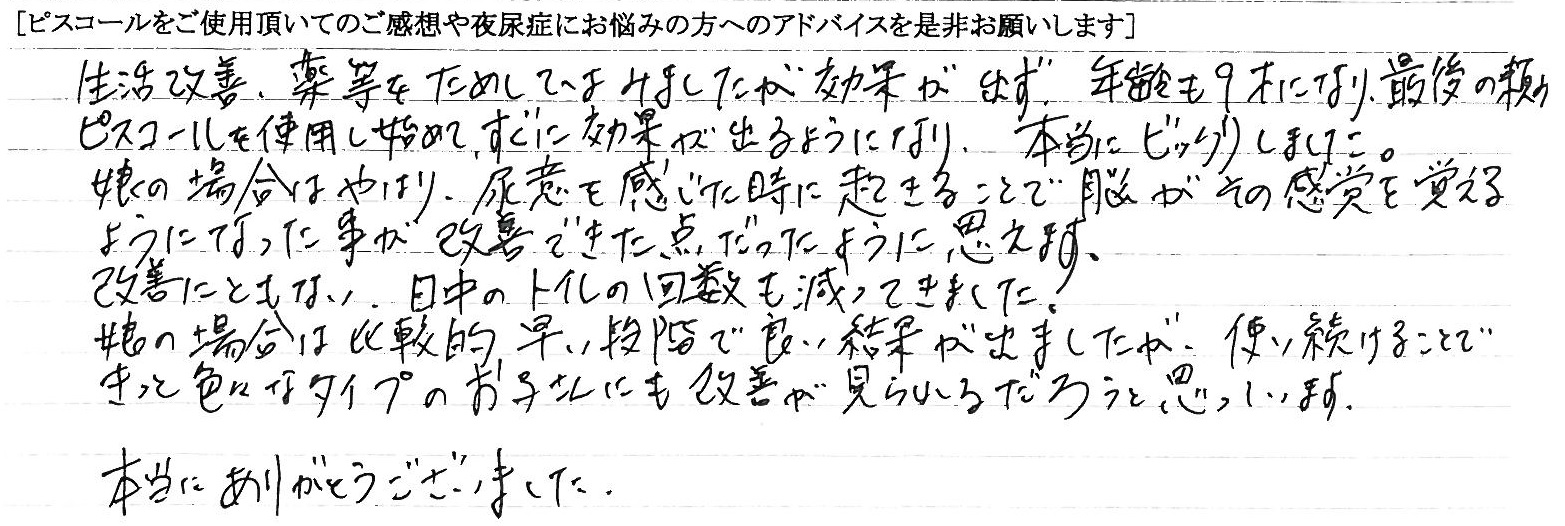 [ピスコールをご使用頂いてのご感想や夜尿症にお悩みの方へのアドバイスを是非お願いします]
生活改善、薬等をためしてはみましたが効果が出ず、年齢も9才になり、最後の頼り
ピスコールを使用し始めて、すぐに効果が出るようになり、本当にビックリしました。
娘の場合はやはり、尿意を感じた時に起きることで脳がその感覚を覚える
ようになった事が改善できた点だったように思えます。
改善にともない、日中のトイレの回数も減ってきました!
娘の場合は比較的早い段階で良い結果が出ましたが、使い続けることで
きっと色々なタイプのお子さんにも改善が見られるだろうと思っています。
本当にありがとうございました。